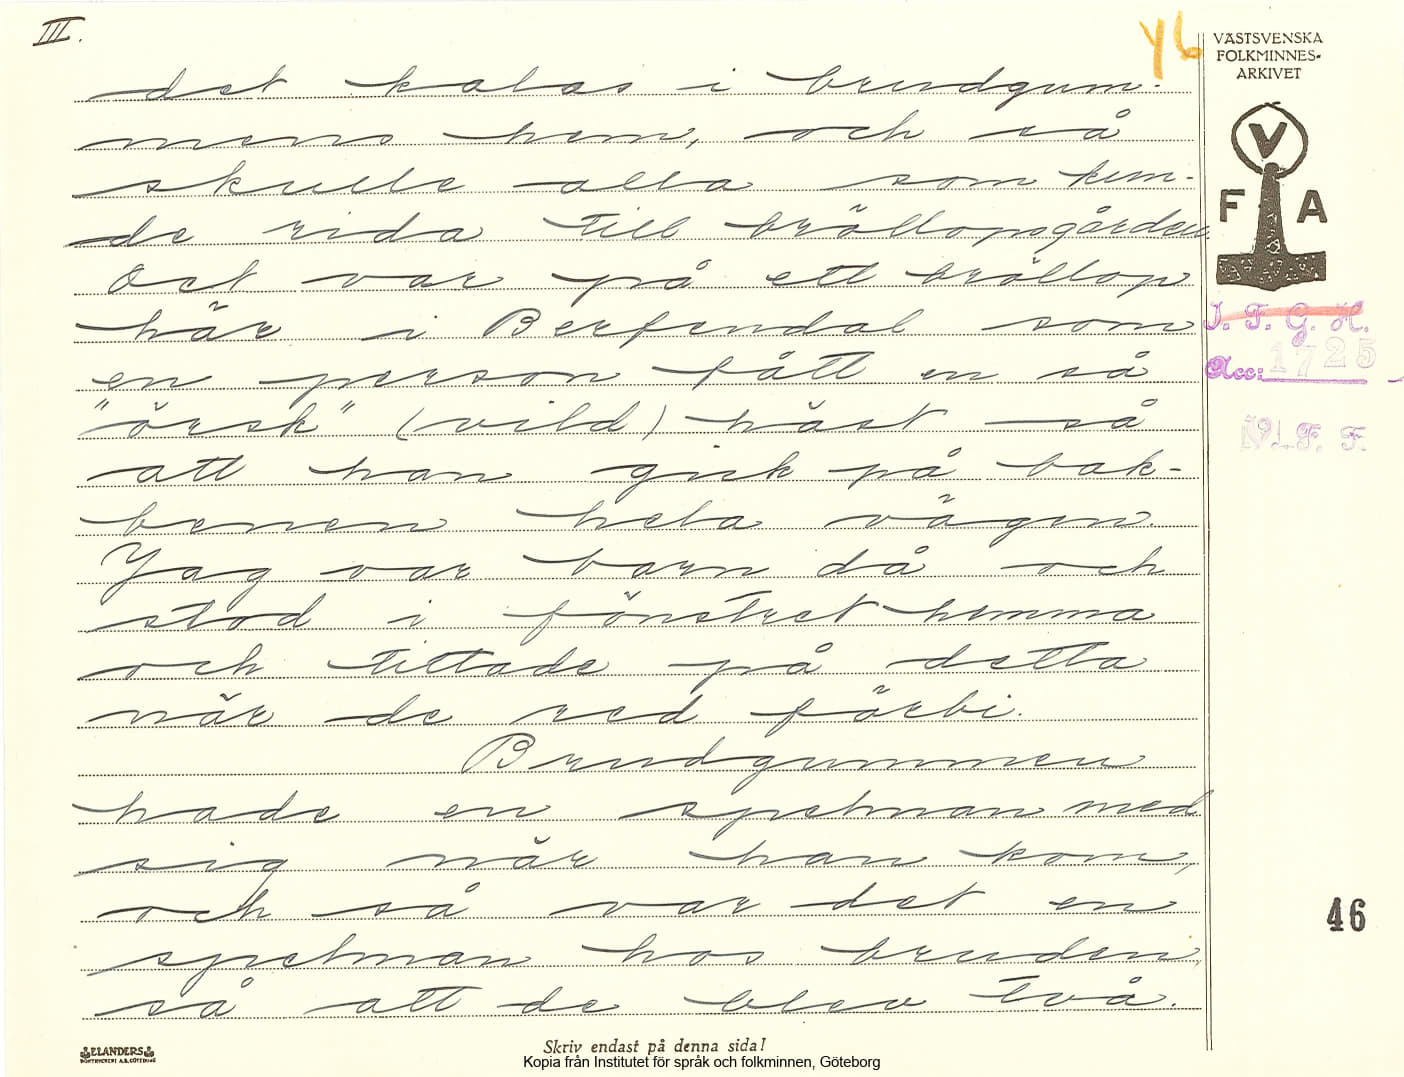 III.
46
VÄSTSVENSKA
FOLKMINNES-
ARKIVET
V
F A
det kalas i brudgum-
mens hem, och så
skulle alla som kun-
de rida till bröllopsgården.
Det var på ett bröllop
här i Berfendal som
en person fått en så
"örsk" (vild) häst så
att han gick på bak-
benen hela vägen.
Jag var barn då och
stod i fönstret hemma
och tittade på detta
när de red förbi.
Brudgummen
hade en spelman med
sig när han kom,
och så var det en
spelman hos bruden,
så att de blev två.
I. F. G. H.
Acc: 1725
F. F.
46
ELANDERS
BOKTRYCKERI A.B. GÖTEBORG
Skriv endast på denna sida!
Kopia från Institutet för språk och folkminnen, Göteborg